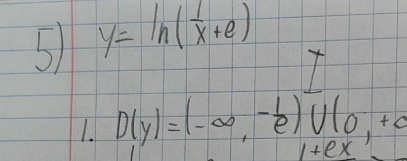 5) y = ln(1/x + e)
I
1. D(y) = (-∞, -1/e) ∪ (0, +
1+ex